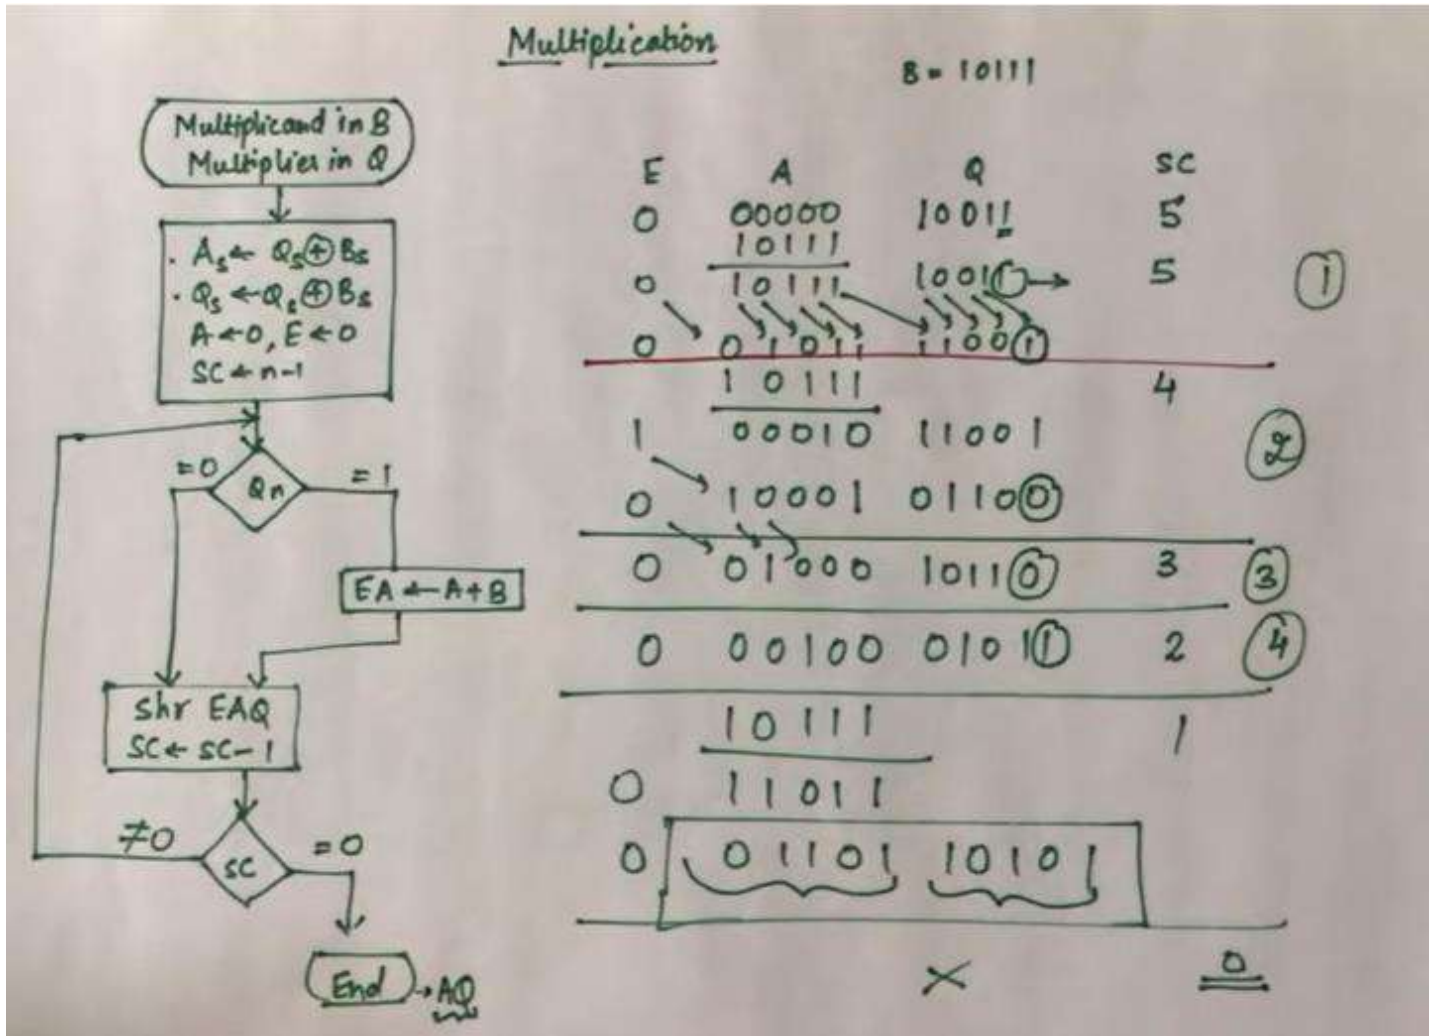 Multiplication
B = 10111
Multiplicand in B
Multiplier in Q
. As ← Qs ⊕ Bs
. Qs ← Qs ⊕ Bs
A ← 0, E ← 0
SC ← n-1
=0 Qn =1
EA ← A + B
Shr EAQ
SC ← SC-1
≠0 SC =0
End → AQ
E A Q SC
0 00000 10011 5
10111
0 10111 10011 → 5 ①
0 01011 11001
10111 4
1 00010 11001 ②
0 10001 01100
0 01000 10110 3 ③
0 00100 01011 2 ④
10111 1
0 11011
0 01101 10101
× 0